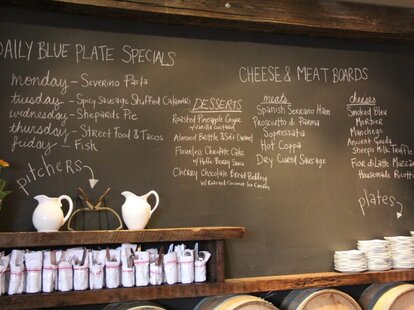 DAILY BLUE PLATE SPECIALS
monday - Severino Pasta
tuesday - Spicy Sausage Stuffed Calamari
wednesday - Shepards Pie
thursday - Street Food & Tacos
friday - Fish
pitchers
DESSERTS
Roasted Pineapple Cake
w/ vanilla custard
Almond Brittle & Soft Caramel
Flourless Chocolate Cake
w/ Berry Sauce
Cherry Chocolate Bread Pudding
w/ Roasted Coconut Ice Cream
CHEESE & MEAT BOARDS
meats
Spanish Serrano Ham
Prosciutto di Parma
Sopressata
Hot Coppa
Dry Cured Sausage
cheeses
Smoked Blew
Morbier
Manchego
Ancient Gouda
Sheeps Milk Truffle
Fior di Latte Mozza
Housemade Ricotta
plates